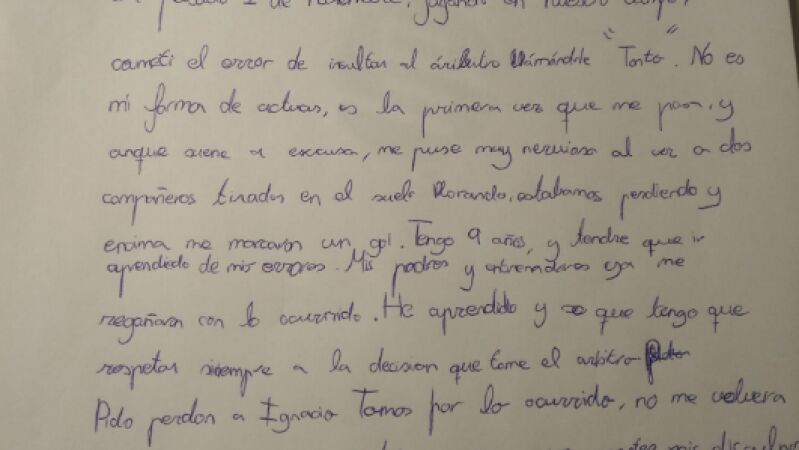 pasado 1 de noviembre, jugando en nuestro campo,
cometi el error de insultar al áributro llámándole "Tonto". No es
mi forma de actuar, es la primera vez que me pasa, y
anque suene a escusa, me puse muy nervioso al ver a dos
compañeros tirados en el suelo llorando, estabamos perdiendo y
encima me marcaron un gol. Tengo 9 años, y tendre que ir
aprendiedo de mis errores. Mis padres y entrenadores ya me
regañaron con lo ocurrido. He aprendido y se que tengo que
respetar siempre a la decision que tome el arbitro
Pido perdon a Ignacio Tamos por lo ocurrido, no me volvera
mis disculpas